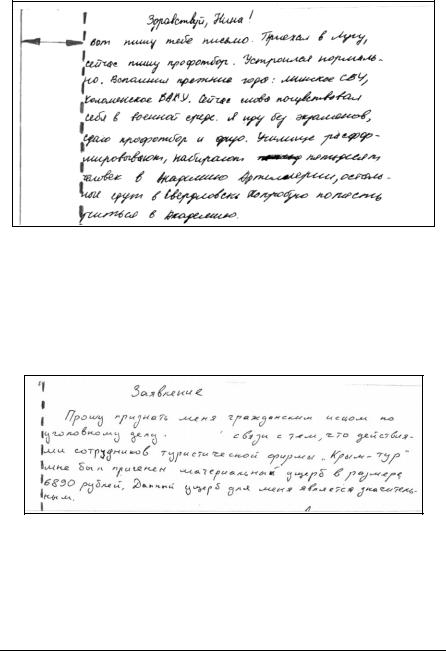 Здравствуй, Нина!
Вот пишу тебе письмо. Приехал в Лугу,
сейчас пишу профотбор. Устроился нормаль-
но. Вспомнил прежние года: минское СВУ,
Коломенское ВАКУ. Сейчас снова почувствовал
себя в военной среде. Я иду без экзаменов,
сдаю профотбор и физо. Училище расфор-
мировывают, набирают пятьдесят
человек в Академию Артиллерии, осталь-
ные едут в Свердловск. Попробую попасть
учиться в Академию.
Заявление
Прошу признать меня гражданским истцом по
уголовному делу. связи с тем, что действия-
ми сотрудников туристической фирмы „Крым-тур"
мне был причинен материальный ущерб в размере
6890 рублей. Данный ущерб для меня является значитель-
ным.